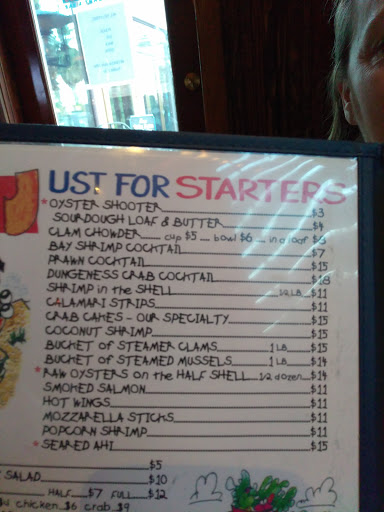 J UST FOR STARTERS
*OYSTER SHOOTER $3
SOURDOUGH LOAF & BUTTER $4
CLAM CHOWDER cup $5 bowl $6 in a loaf $8
BAY SHRIMP COCKTAIL $7
PRAWN COCKTAIL $15
DUNGENESS CRAB COCKTAIL
SHRIMP in the SHELL 1/2 LB $11
CALAMARI STRIPS $11
CRAB CAKES - OUR SPECIALTY $15
COCONUT SHRIMP $15
BUCHET OF STEAMER CLAMS 1 LB $15
BUCHET OF STEAMED MUSSELS 1 LB $14
*RAW OYSTERS on the HALF SHELL 1/2 dozen $14
SMOHED SALMON $11
HOT WINGS $11
MOZZARELLA STICHS $11
POPCORN SHRIMP $11
*SEARED AHI $15
$5
SALAD $10
HALF $7 FULL $12
chicken $6 crab $9